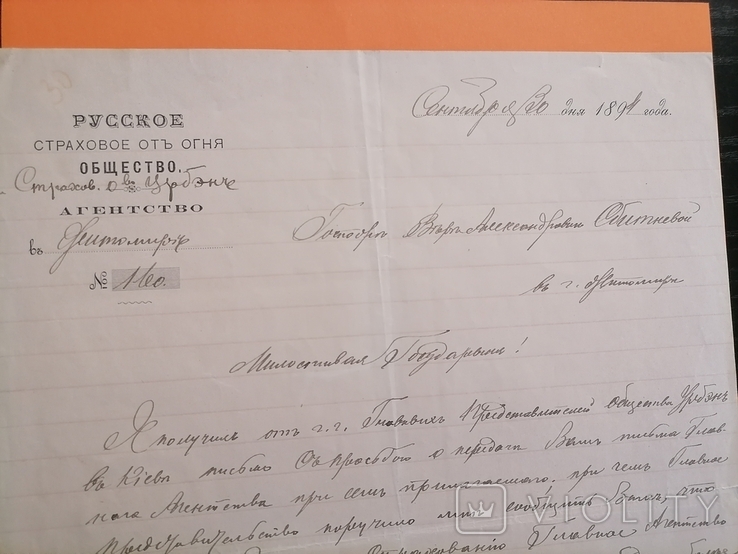 Сентября 30 дня 1891 года.
РУССКОЕ
СТРАХОВОЕ ОТЪ ОГНЯ
ОБЩЕСТВО.
Страхов. о-во Урбэнъ
АГЕНТСТВО
въ Житомирѣ
№ 160.
Госпожѣ Вѣрѣ Александровнѣ Сбитневой
въ г. Житомирѣ
Милостивая Государыня!
Я получилъ отъ г.г. Главныхъ Представителей общества Урбэнъ
въ Кіевѣ письмо съ просьбою о передачѣ Вамъ письма Глав-
наго Агентства при семъ прилагаемого, при чемъ Главное
Представительство поручило мнѣ сообщить Вамъ, что
Главное Агентство
VIOLITY